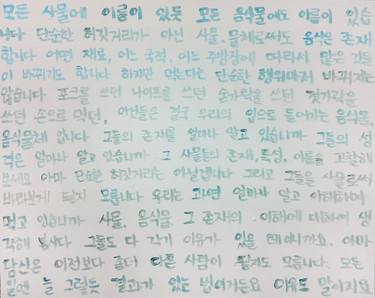 모든 사물에 이름이 있듯 모든 음식물에도 이름이 있습
니다 단순한 허깃거리가 아닌 사물 물체로써도 음식은 존재
합니다 어떤 재료, 어느 국적, 어느 주방장에 따라서 많은 것들
이 바뀌기도 합니다 하지만 먹는다는 단순한 행위마저 바뀌지는
않습니다 포크를 쓰던 나이프를 쓰던 숟가락을 쓰던 젓가락을
쓰던 손으로 먹던, 이건들은 결국 우리의 입으로 들어가는 음식물,
음식물체 입니다 그들의 존재를 얼마나 알고 있습니까 그들의 성
격은 얼마나 알고 있습니까 그 사물들의 존재, 특성, 이름을 고찰해
보세요 아마 단순한 허깃거리는 아닐겁니다 그리고 그들을 사물로써
바라보게 될지 모릅니다 우리는 과연 얼마나 알고 이해하며
먹고 있습니까 사물, 음식물 그 존재의 이해에 대하여 생
각해 봅시다 그들도 다 각기 이유가 있을 테니까요. 아마
당신은 이전보다 좀더 다른 사람이 될지도 모릅니다. 모든
일엔 늘 그렇듯 결과가 있는 법이거든요 이유도 말이지요.